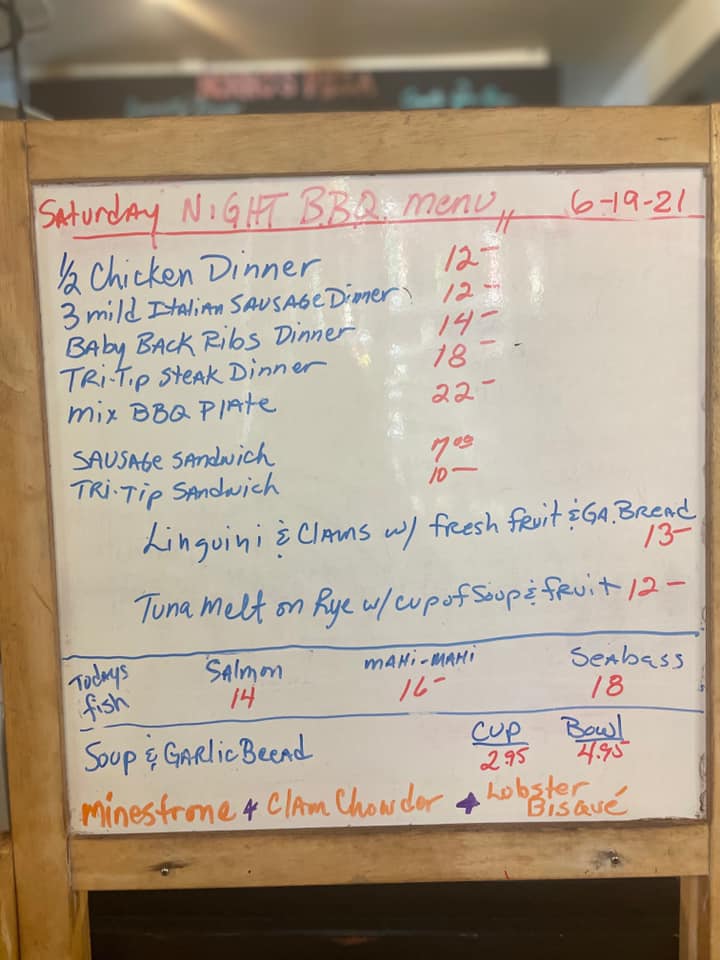 Saturday NIGHT B.B.Q. menu 6-19-21
1/2 Chicken Dinner 12-
3 mild Italian Sausage Dinner 12-
Baby Back Ribs Dinner 14-
Tri-Tip Steak Dinner 18-
mix BBQ Plate 22-
Sausage Sandwich 7.00
Tri-Tip Sandwich 10-
Linguini & Clams w/ fresh fruit & GA. Bread
13-
Tuna Melt on Rye w/ cup of Soup & fruit 12-
Todays fish Salmon MAHi-MAHi Seabass
14 16- 18
Soup & Garlic Bread Cup Bowl
2.95 4.95
Minestrone & Clam Chowder & Lobster Bisqué